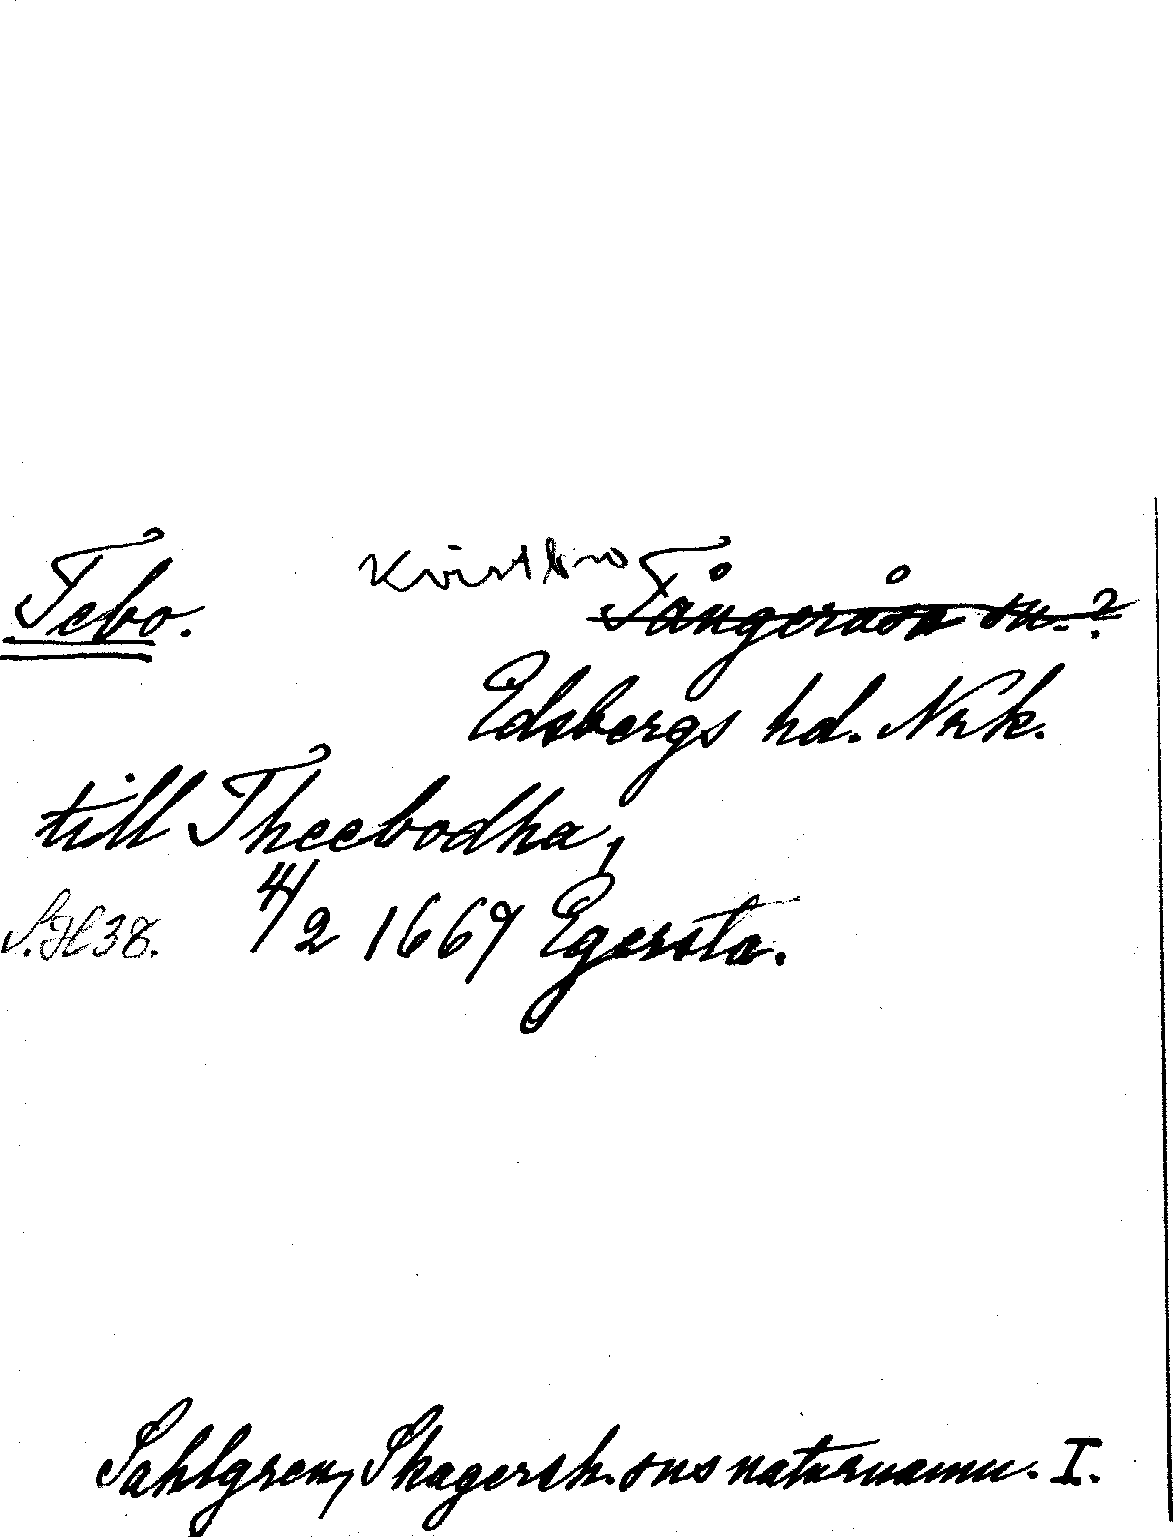 Tebo. Kvistbro Tångeråsa sn.?
Edsbergs hd. Nrk.
till Theebodha,
S.H 38. 4/2 1669 Egersta.
Sahlgren, Skagersh. sns naturnamn. I.